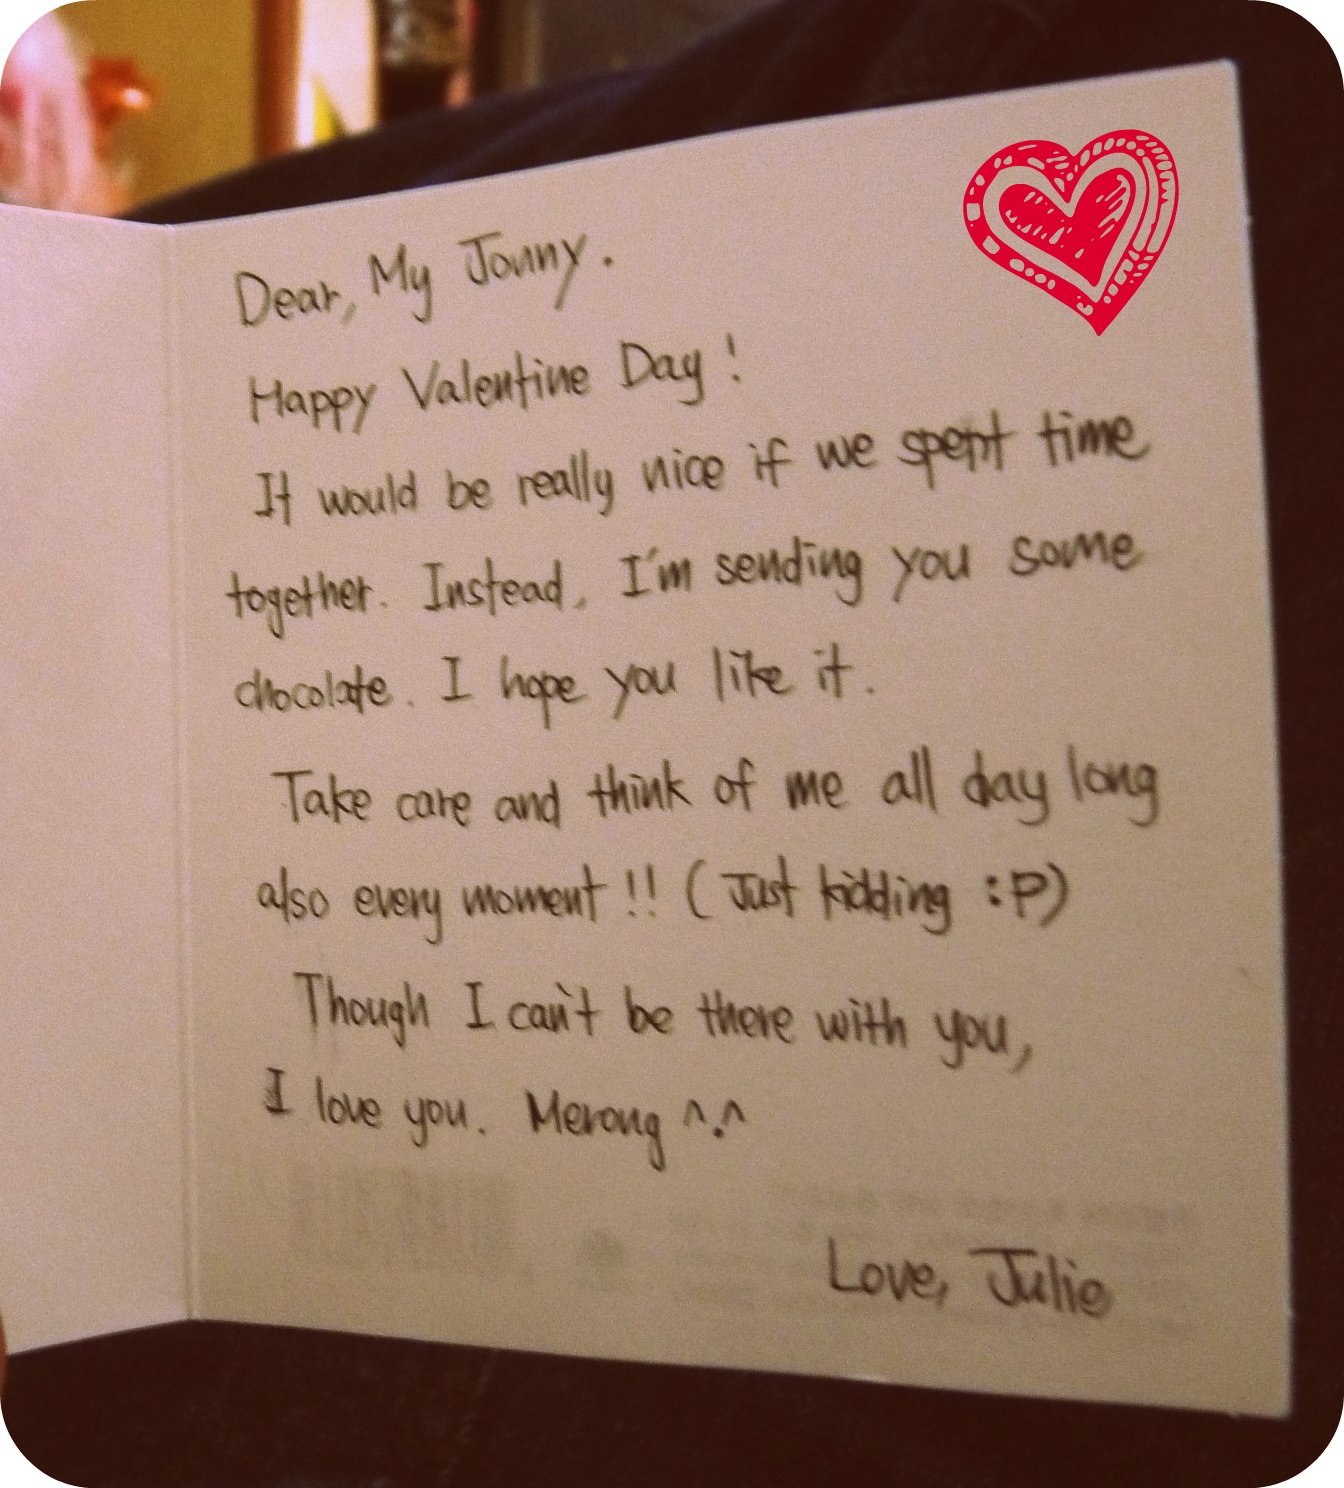 Dear, My Jonny.
Happy Valentine Day!
It would be really nice if we spent time
together. Instead, I'm sending you some
chocolate. I hope you like it.
Take care and think of me all day long
also every moment!! (Just kidding :P)
Though I can't be there with you,
I love you. Merong ^.^
Love, Julie